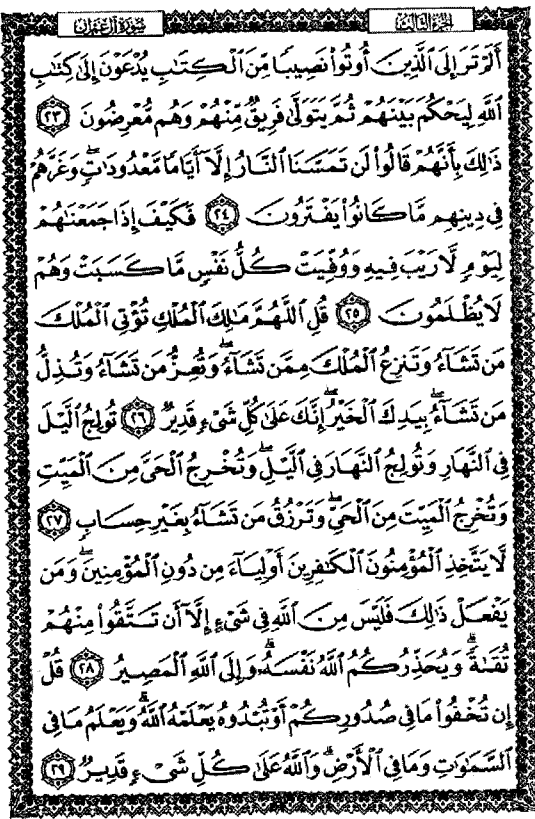 الجزء الثالث
سورة آل عمران
أَلَمْ تَرَ إِلَى الَّذِينَ أُوتُوا۟ نَصِيبًا مِّنَ الْكِتَابِ يُدْعَوْنَ إِلَىٰ كِتَابِ
اللَّهِ لِيَحْكُمَ بَيْنَهُمْ ثُمَّ يَتَوَلَّىٰ فَرِيقٌ مِّنْهُمْ وَهُم مُّعْرِضُونَ ٢٣
ذَٰلِكَ بِأَنَّهُمْ قَالُوا۟ لَن تَمَسَّنَا النَّارُ إِلَّا أَيَّامًا مَّعْدُودَاتٍ ۖ وَغَرَّهُمْ
فِي دِينِهِم مَّا كَانُوا۟ يَفْتَرُونَ ٢٤ فَكَيْفَ إِذَا جَمَعْنَاهُمْ
لِيَوْمٍ لَّا رَيْبَ فِيهِ وَوُفِّيَتْ كُلُّ نَفْسٍ مَّا كَسَبَتْ وَهُمْ
لَا يُظْلَمُونَ ٢٥ قُلِ اللَّهُمَّ مَالِكَ الْمُلْكِ تُؤْتِي الْمُلْكَ
مَن تَشَاءُ وَتَنزِعُ الْمُلْكَ مِمَّن تَشَاءُ ۖ وَتُعِزُّ مَن تَشَاءُ وَتُذِلُّ
مَن تَشَاءُ ۖ بِيَدِكَ الْخَيْرُ ۖ إِنَّكَ عَلَىٰ كُلِّ شَىْءٍ قَدِيرٌ ٢٦ تُولِجُ اللَّيْلَ
فِي النَّهَارِ وَتُولِجُ النَّهَارَ فِي اللَّيْلِ ۖ وَتُخْرِجُ الْحَىَّ مِنَ الْمَيِّتِ
وَتُخْرِجُ الْمَيِّتَ مِنَ الْحَىِّ ۖ وَتَرْزُقُ مَن تَشَاءُ بِغَيْرِ حِسَابٍ ٢٧
لَّا يَتَّخِذِ الْمُؤْمِنُونَ الْكَافِرِينَ أَوْلِيَاءَ مِن دُونِ الْمُؤْمِنِينَ ۖ وَمَن
يَفْعَلْ ذَٰلِكَ فَلَيْسَ مِنَ اللَّهِ فِي شَىْءٍ إِلَّا أَن تَتَّقُوا۟ مِنْهُمْ
تُقَاةً ۗ وَيُحَذِّرُكُمُ اللَّهُ نَفْسَهُ ۗ وَإِلَى اللَّهِ الْمَصِيرُ ٢٨ قُلْ
إِن تُخْفُوا۟ مَا فِي صُدُورِكُمْ أَوْ تُبْدُوهُ يَعْلَمْهُ اللَّهُ ۗ وَيَعْلَمُ مَا فِي
السَّمَاوَاتِ وَمَا فِي الْأَرْضِ ۗ وَاللَّهُ عَلَىٰ كُلِّ شَىْءٍ قَدِيرٌ ٢٩